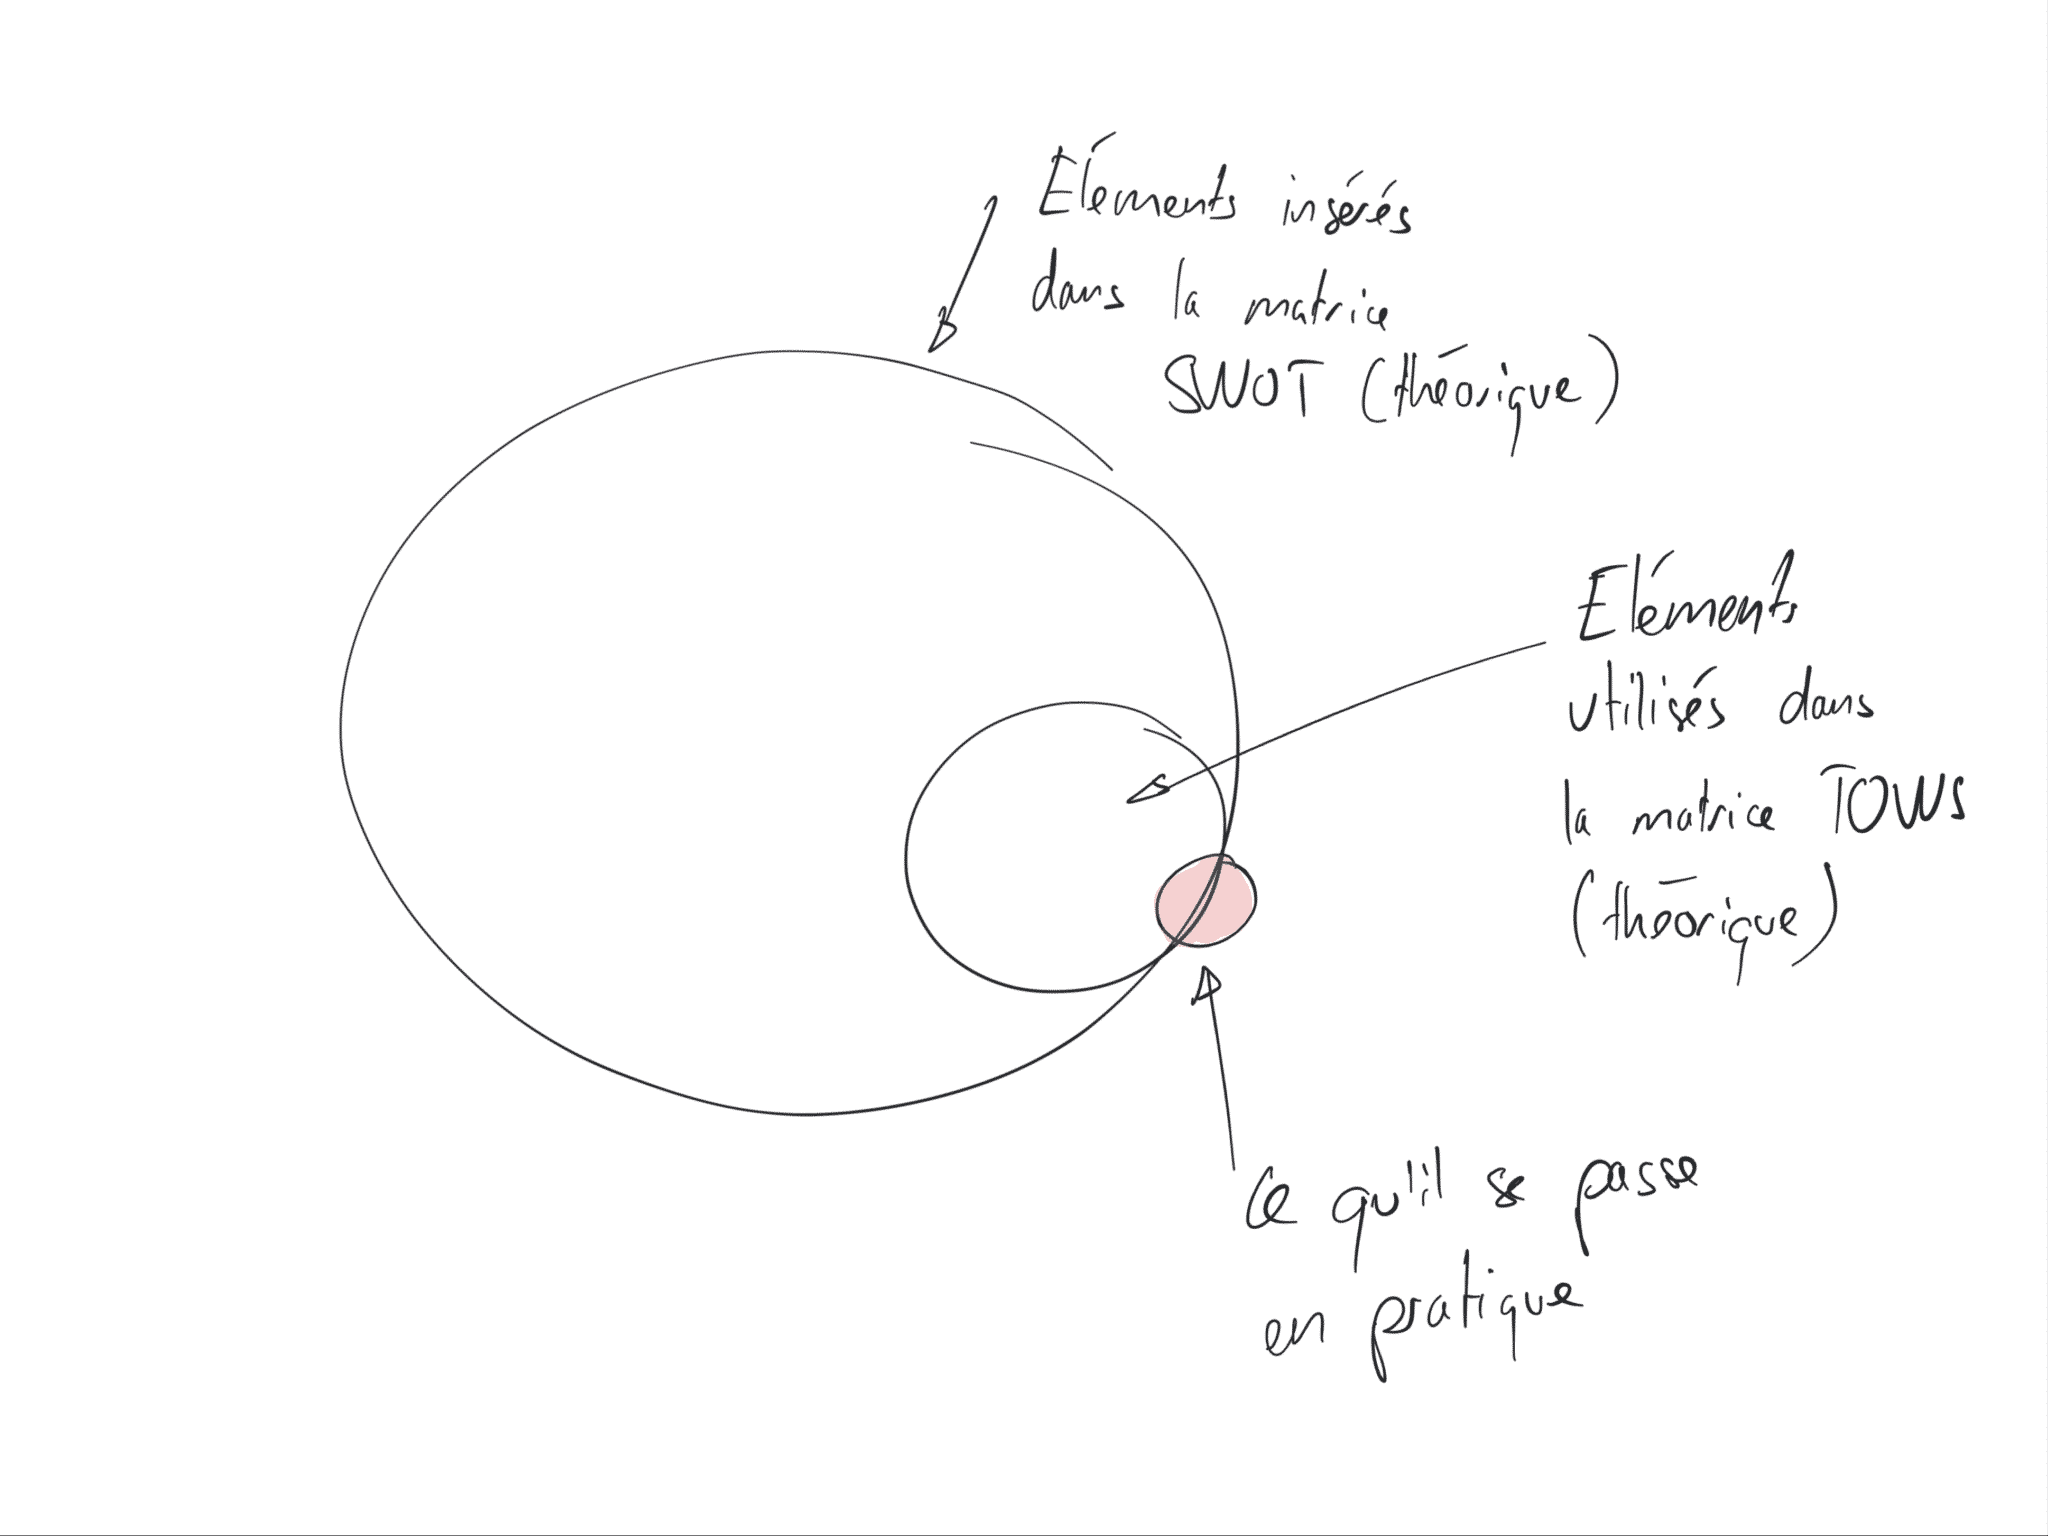 Eléments insérés
dans la matrice
SWOT (théorique)
Eléments
utilisés dans
la matrice TOWS
(théorique)
Ce qu'il se passe
en pratique